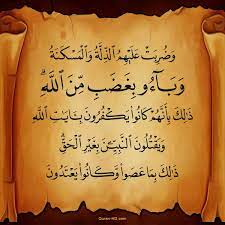 وَضُرِبَتْ عَلَيْهِمُ ٱلذِّلَّةُ وَٱلْمَسْكَنَةُ
وَبَآءُو بِغَضَبٍ مِّنَ ٱللَّهِۗ
ذَٰلِكَ بِأَنَّهُمْ كَانُوا۟ يَكْفُرُونَ بِـَٔايَٰتِ ٱللَّهِ
وَيَقْتُلُونَ ٱلنَّبِيِّـۧنَ بِغَيْرِ ٱلْحَقِّۗ
ذَٰلِكَ بِمَا عَصَوا۟ وَّكَانُوا۟ يَعْتَدُونَ
Quran-HD.com